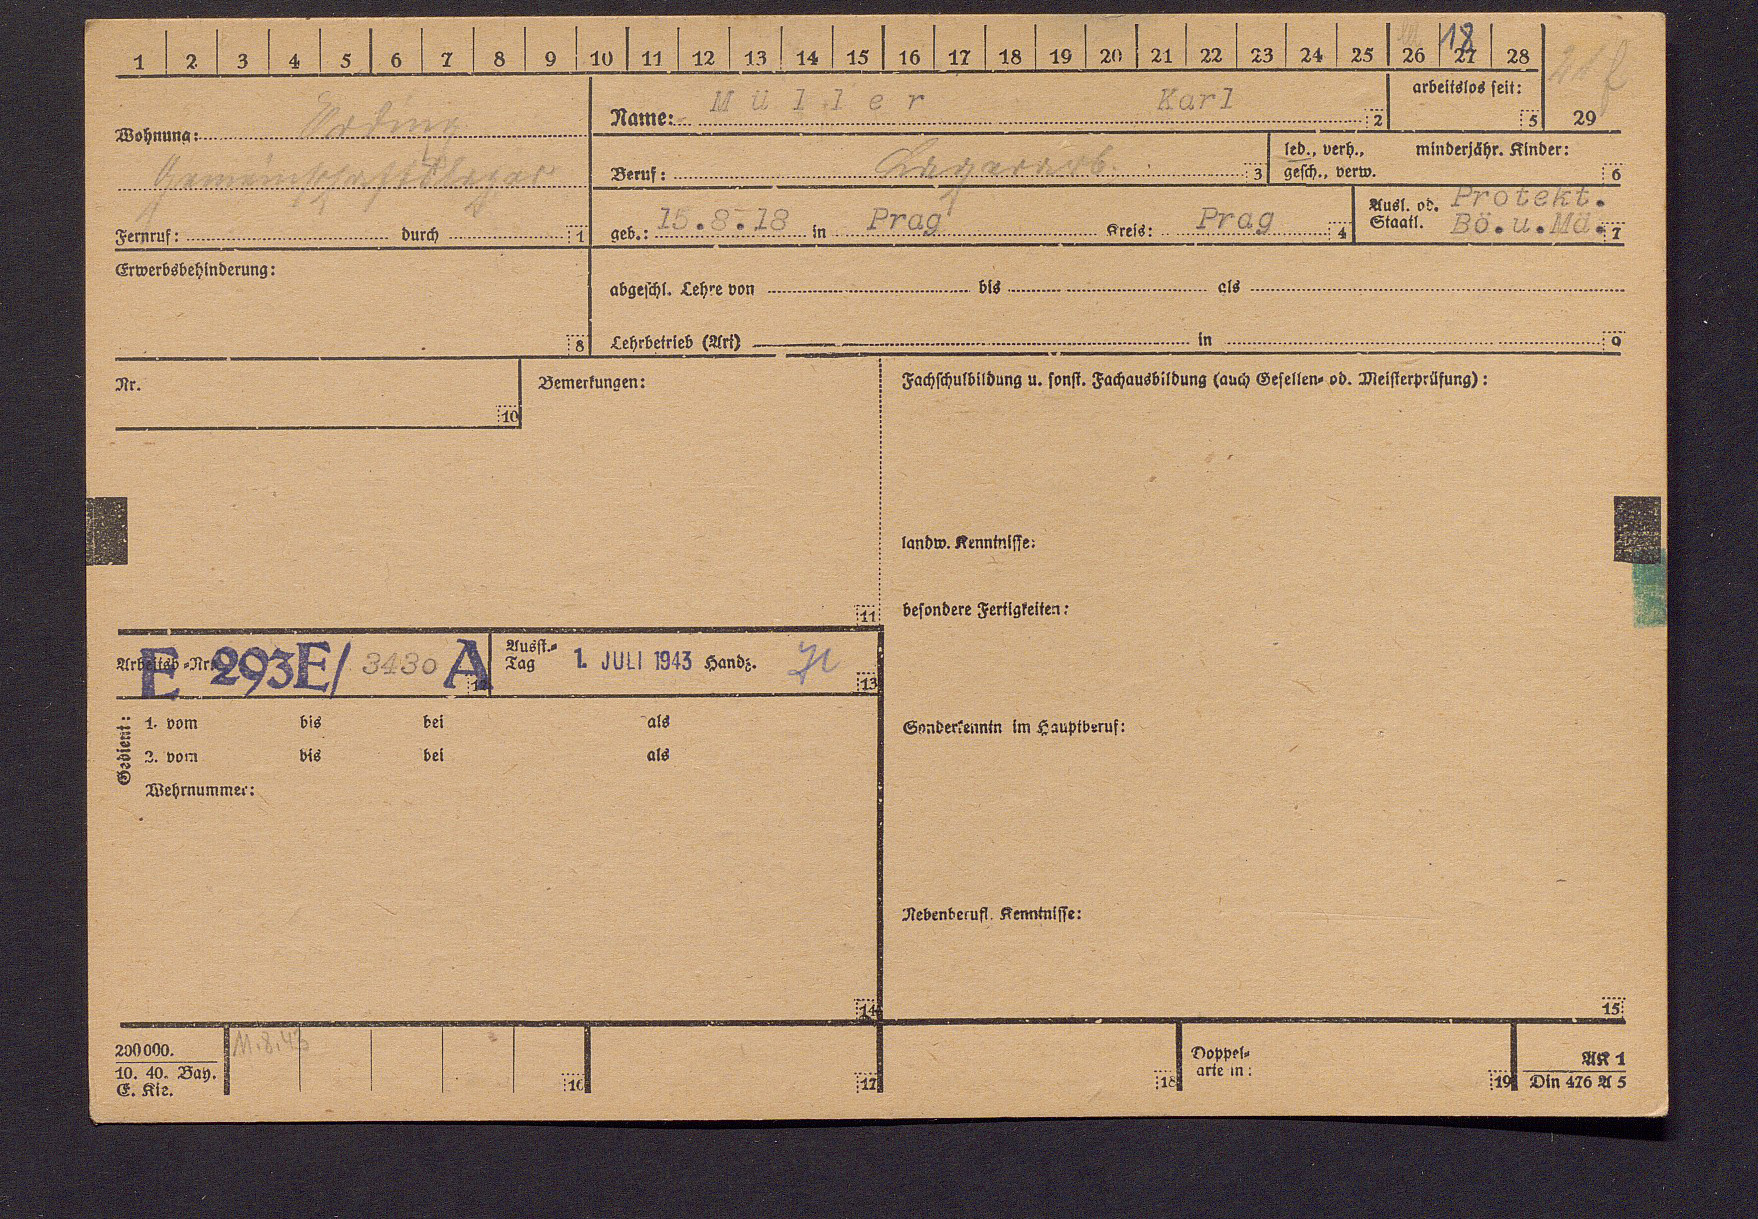 1 2 3 4 5 6 7 8 9 10 11 12 13 14 15 16 17 18 19 20 21 22 23 24 25 26 27 28
18
arbeitslos seit:
5
29
Wohnung: Erding
Gemeinschaftslager
Fernruf: durch 1
Name: Müller Karl 2
Beruf: Lagerarb. 3
led., verh., minderjähr. Kinder:
gesch., verw. 6
geb.: 15.8.18 in Prag Kreis: Prag 4
Ausl. od. Protekt.
Staatl. Bö.u.Mä. 7
Erwerbsbehinderung:
8
abgeschl. Lehre von bis als
Lehrbetrieb (Art) in 9
Nr.
10
Bemerkungen:
11
Fachschulbildung u. sonst. Fachausbildung (auch Gesellen- od. Meisterprüfung):
landw. Kenntnisse:
besondere Fertigkeiten:
Sonderkenntn im Hauptberuf:
Nebenberufl. Kenntnisse:
15
Arbeitsb.-Nr. E 293E/ 3430 A 12
Ausst.-
Tag 1. JULI 1943 Handz. 13
Gedient:
1. vom bis bei als
2. vom bis bei als
Wehrnummer:
14
200000.
10. 40. Bay.
E. Kie.
11.8.43
16
17
18
Doppel-
arte in:
19
AK 1
Din 476 A 5